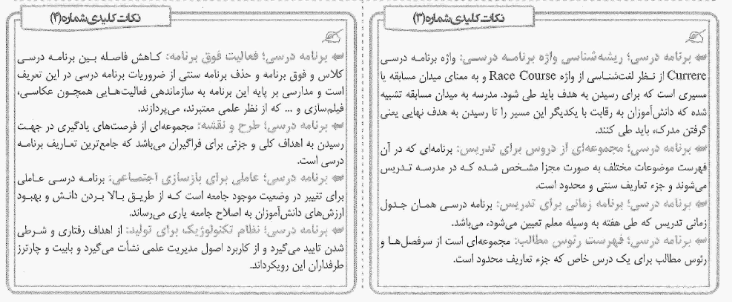 نکات کلیدی شماره (۳)
برنامه درسی؛ ریشه‌شناسی واژه برنامه درسی: واژه برنامه درسی
Currere از نظر لغت‌شناسی از واژه Race Course و به معنای میدان مسابقه یا
مسیری است که برای رسیدن به هدف باید طی شود. مدرسه به میدان مسابقه تشبیه
شده که دانش‌آموزان به رقابت با یکدیگر این مسیر را تا رسیدن به هدف نهایی یعنی
گرفتن مدرک، باید طی کنند.
برنامه درسی؛ مجموعه‌ای از دروس برای تدریس: برنامه‌ای که در آن
فهرست موضوعات مختلف به صورت مجزا مشخص شده که در مدرسه تدریس
می‌شوند و جزء تعاریف سنتی و محدود است.
برنامه درسی؛ برنامه زمانی برای تدریس: برنامه درسی همان جدول
زمانی تدریس که طی هفته به وسیله معلم تعیین می‌شود، می‌باشد.
برنامه درسی؛ فهرست رئوس مطالب: مجموعه‌ای است از سرفصل‌ها و
رئوس مطالب برای یک درس خاص که جزء تعاریف محدود است.
نکات کلیدی شماره (۴)
برنامه درسی؛ فعالیت فوق برنامه: کاهش فاصله بین برنامه درسی
کلاس و فوق برنامه و حذف برنامه سنتی از ضروریات برنامه درسی در این تعریف
است و مدارسی بر پایه این برنامه به سازماندهی فعالیت‌هایی همچون عکاسی،
فیلم‌سازی و ... که از نظر علمی معتبرند، می‌پردازند.
برنامه درسی؛ طرح و نقشه: مجموعه‌ای از فرصت‌های یادگیری در جهت
رسیدن به اهداف کلی و جزئی برای فراگیران می‌باشد که جامع‌ترین تعاریف برنامه
درسی است.
برنامه درسی؛ عاملی برای بازسازی اجتماعی: برنامه درسی عاملی
برای تغییر در وضعیت موجود جامعه است که از طریق بالا بردن دانش و بهبود
ارزش‌های دانش‌آموزان به اصلاح جامعه یاری می‌رساند.
برنامه درسی؛ نظام تکنولوژیک برای تولید: از اهداف رفتاری و شرطی
شدن تایید می‌گیرد و از کاربرد اصول مدیریت علمی نشأت می‌گیرد و بابیت و چارترز
طرفداران این رویکرداند.